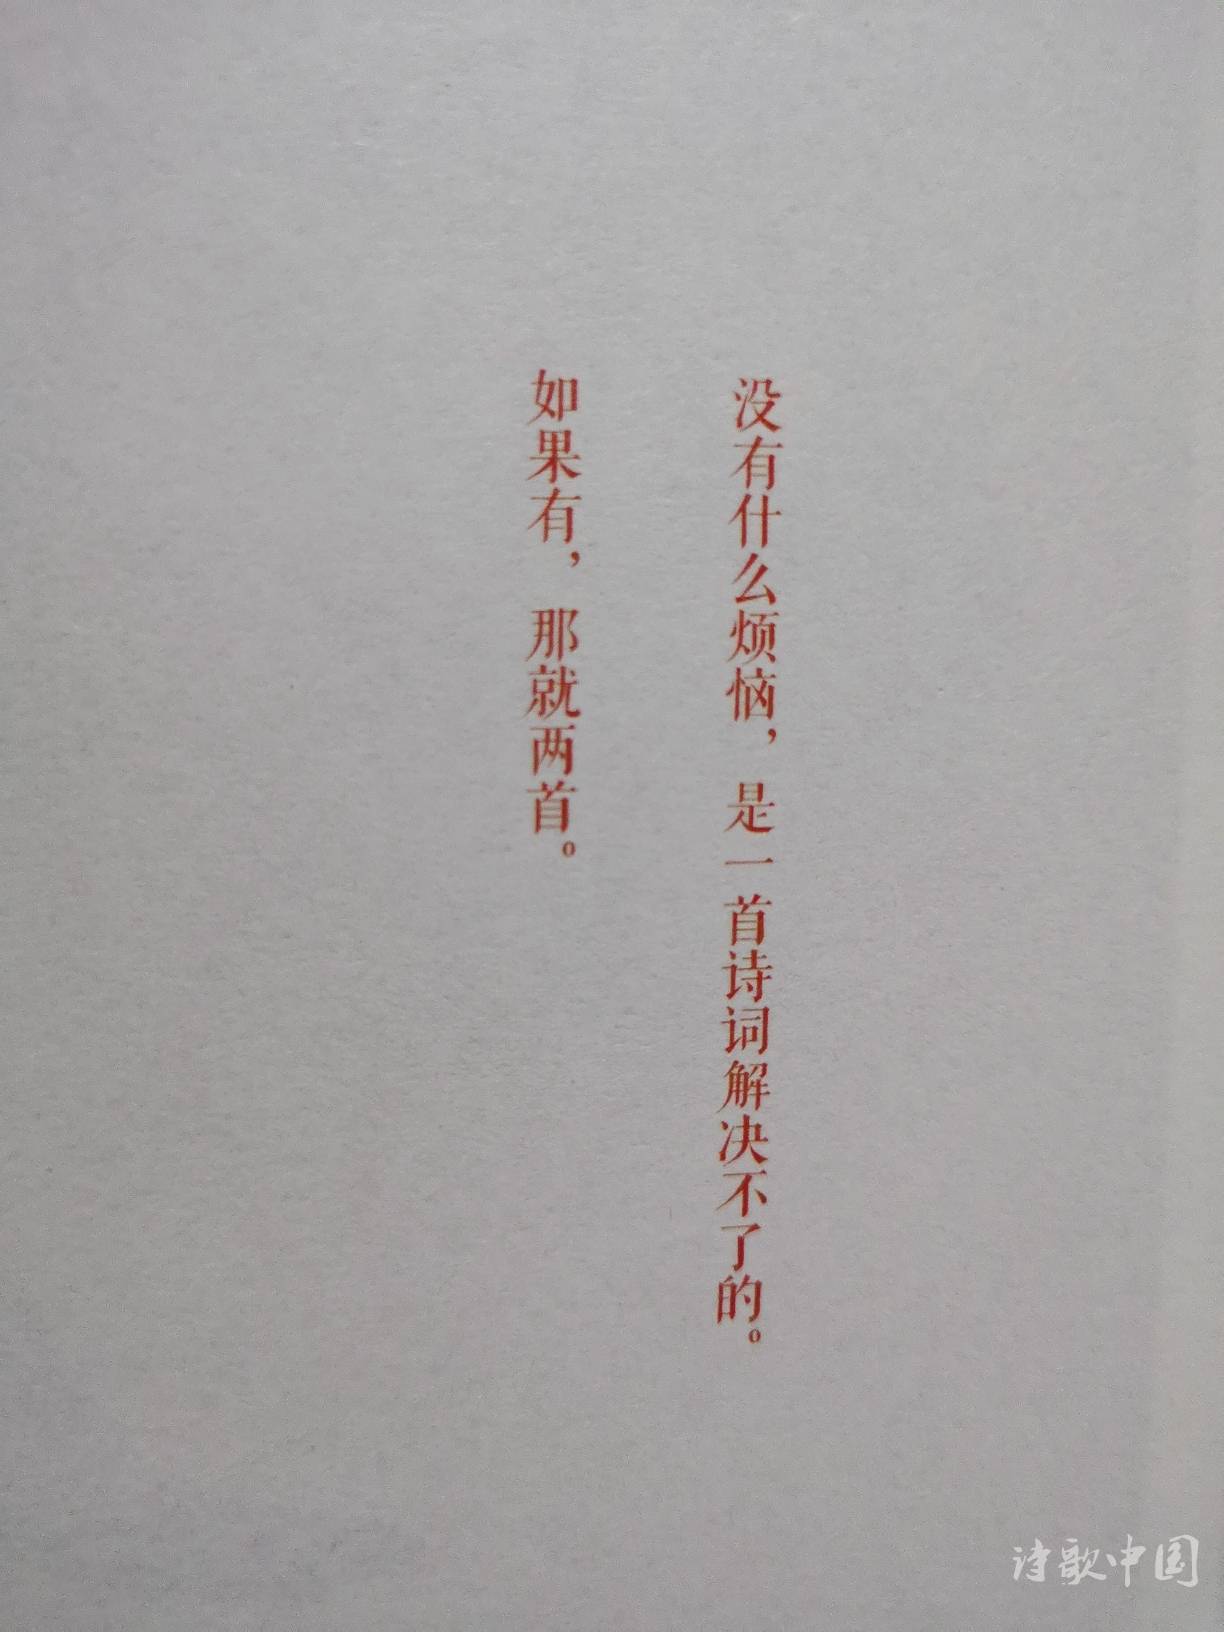 没有什么烦恼，是一首诗词解决不了的。
如果有，那就两首。
诗歌中国